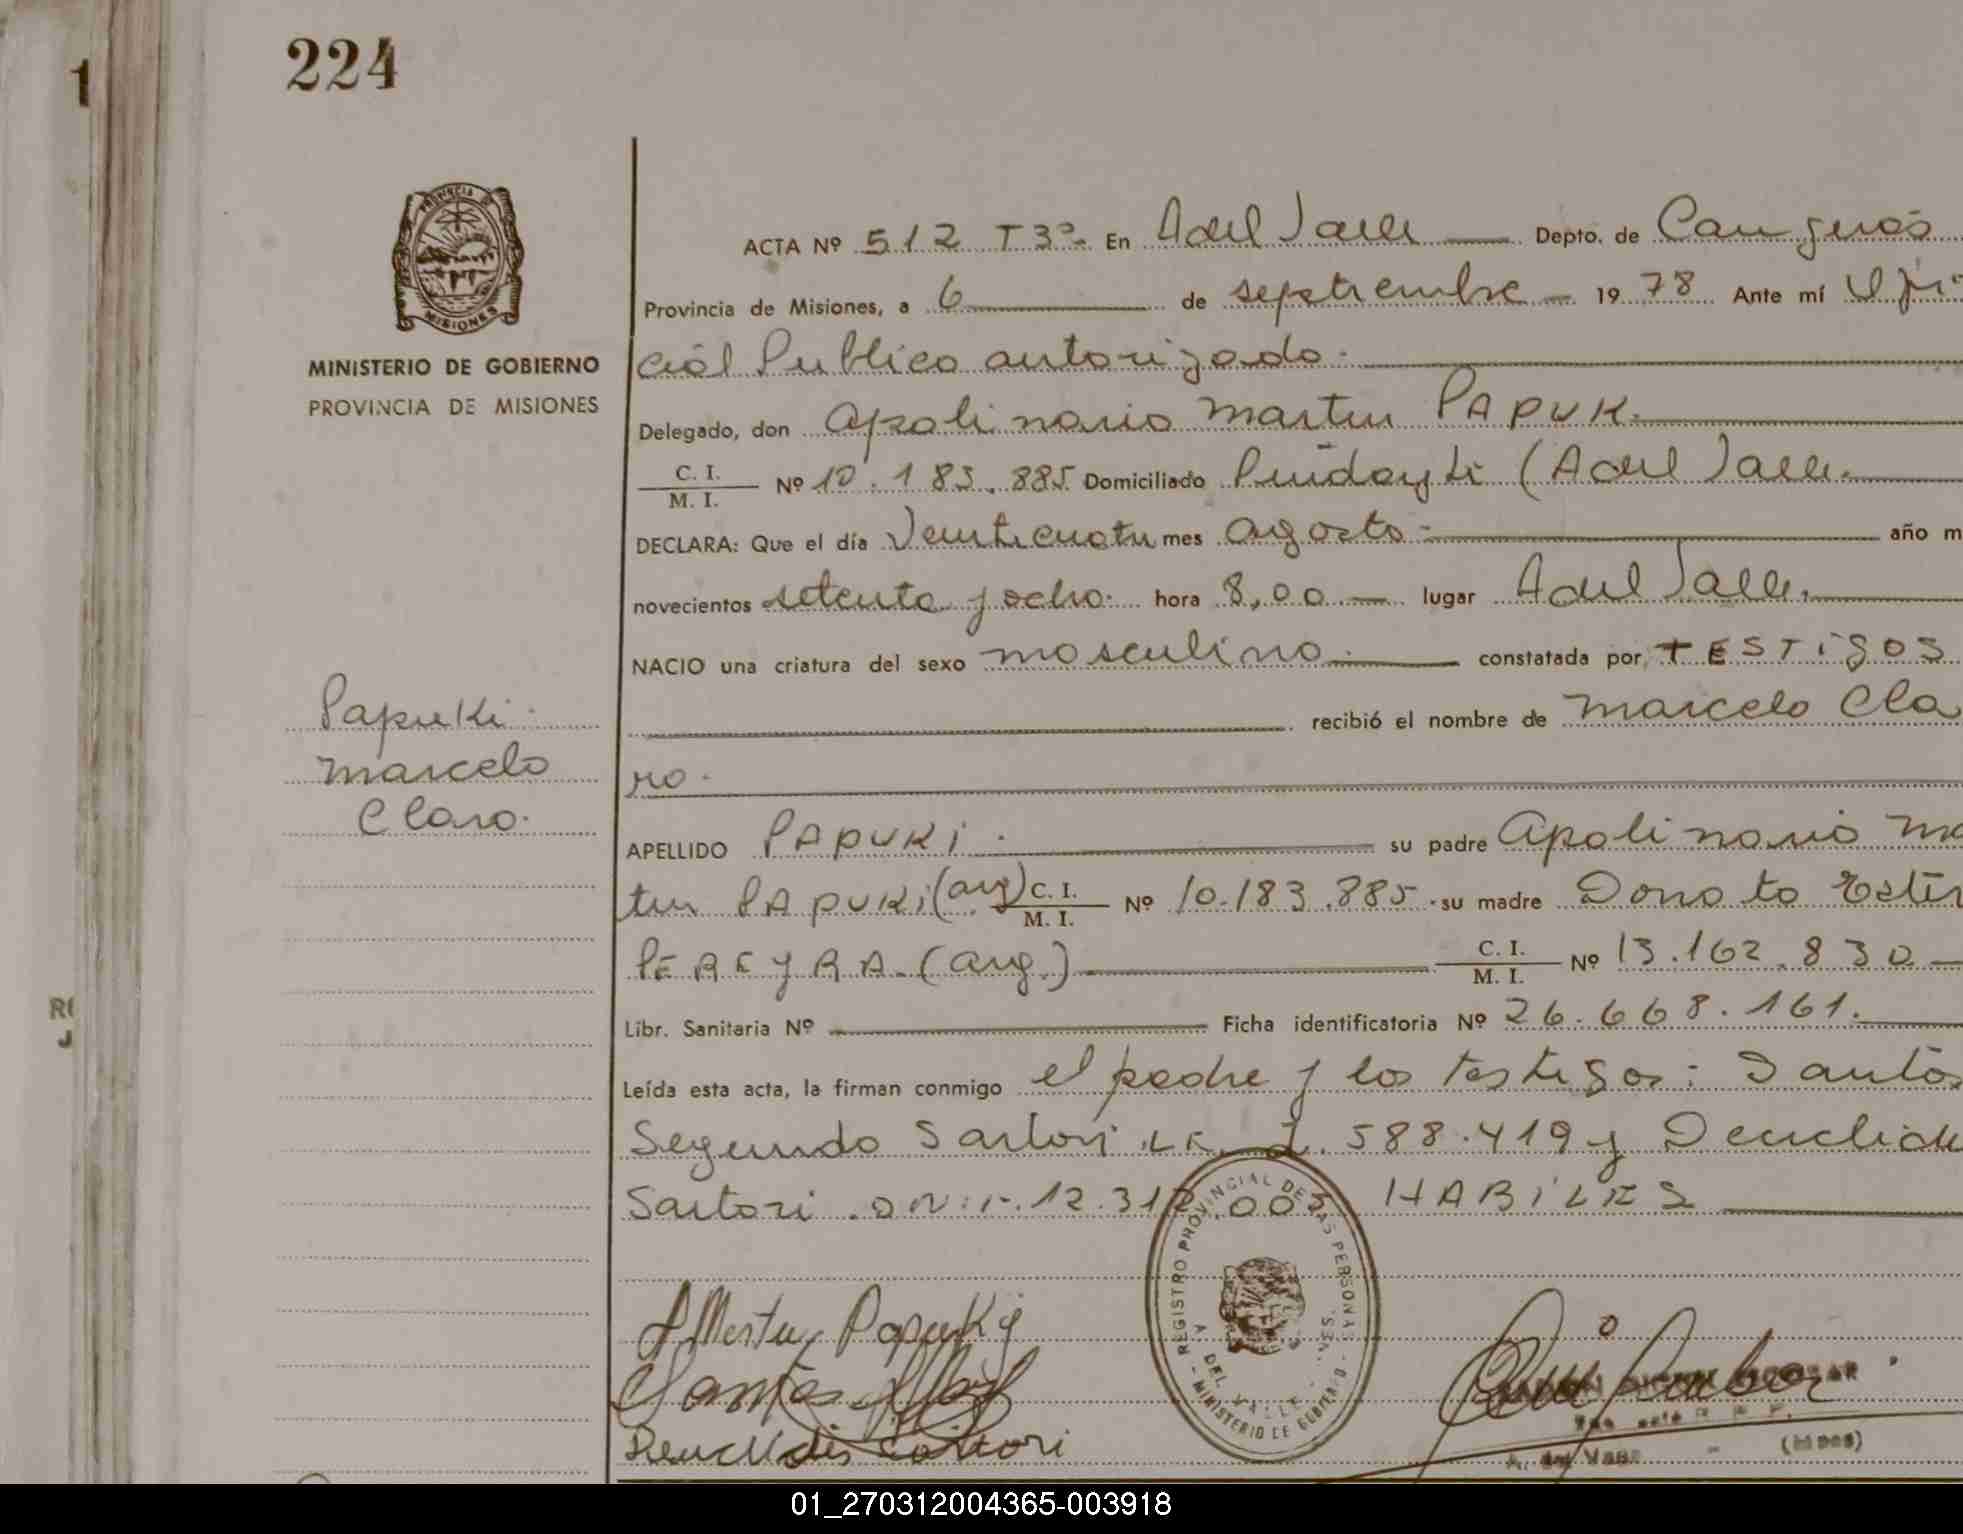 224
1
PROVINCIA DE
MISIONES
MINISTERIO DE GOBIERNO
PROVINCIA DE MISIONES
ACTA Nº 512 T3º. En A del Valle Depto. de Cainguás
Provincia de Misiones, a 6 de septiembre 1978 Ante mí Ofi
cial Publico autorizado.
Delegado, don Apolinario Martin PAPUK.
C. I. / M. I. Nº 10.183.885 Domiciliado Pindayti (A del Valle.
DECLARA: Que el día Veinticuatro mes agosto año m
novecientos setenta y ocho. hora 8,00 lugar A del Valle.
NACIO una criatura del sexo masculino. constatada por TESTIGOS
recibió el nombre de Marcelo Cla
ro.
Papuki
Marcelo
Claro.
APELLIDO PAPUKI. su padre Apolinario Ma
tin PAPUKi (arg) C. I. / M. I. Nº 10.183.885. su madre Donata Ester
PEREYRA. (arg.) C. I. / M. I. Nº 13.162.830
Libr. Sanitaria Nº Ficha identificatoria Nº 26.668.161.
Leída esta acta, la firman conmigo el padre y los testigos: Santos
Segundo Sartori L.E. 2.588.419 y Deuclide
Sartori. D N.I. 12.312.003 HABILES
REGISTRO PROVINCIAL DE LAS PERSONAS
A. DEL VALLE - MNES.
- MINISTERIO DE GOBIERNO -
A Martin Papuki
Santos
Deuclides Sartori
A. del Valle - (Mnes)
RE
J
01_270312004365-003918